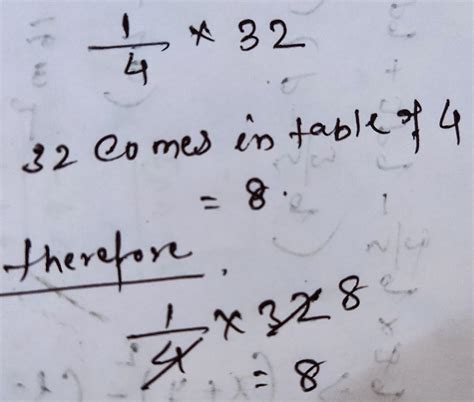 1/4 × 32
32 comes in table of 4
= 8.
therefore,
1/4 × 32 8
= 8